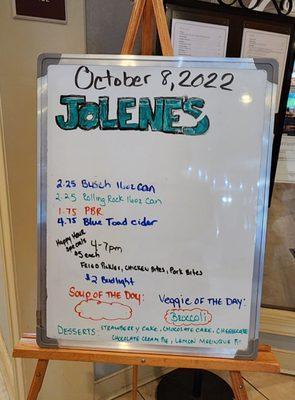 October 8, 2022
JOLENE'S
2.25 Busch 16oz can
2.25 Rolling Rock 16oz Can
1.75 PBR
4.75 Blue Toad Cider
Happy Hour
specials
4-7pm
$5 each
Fried Pickles, Chicken Bites, Pork Bites
$2 Budlight
Soup of the Day:
Veggie of the Day:
Broccoli
Desserts: Strawberry Cake, Chocolate Cake, Cheesecake
Chocolate Cream Pie, Lemon Meringue Pie